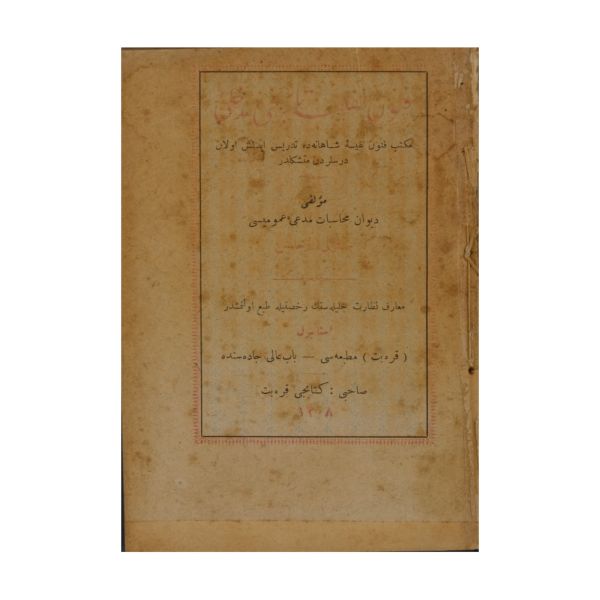 مكتب فنون نفيسهٔ شاهانه‌ده تدريس ايدلمش اولان
درسلردن متشكلدر
مؤلفى
ديوان محاسبات مدعئ عموميسى
معارف نظارت جليله‌سنك رخصتيله طبع اولنمشدر
استانبول
( قره‌بت ) مطبعه‌سى — باب عالى جاده‌سنده
صاحبى : كتابجى قره‌بت
١٣٠٨